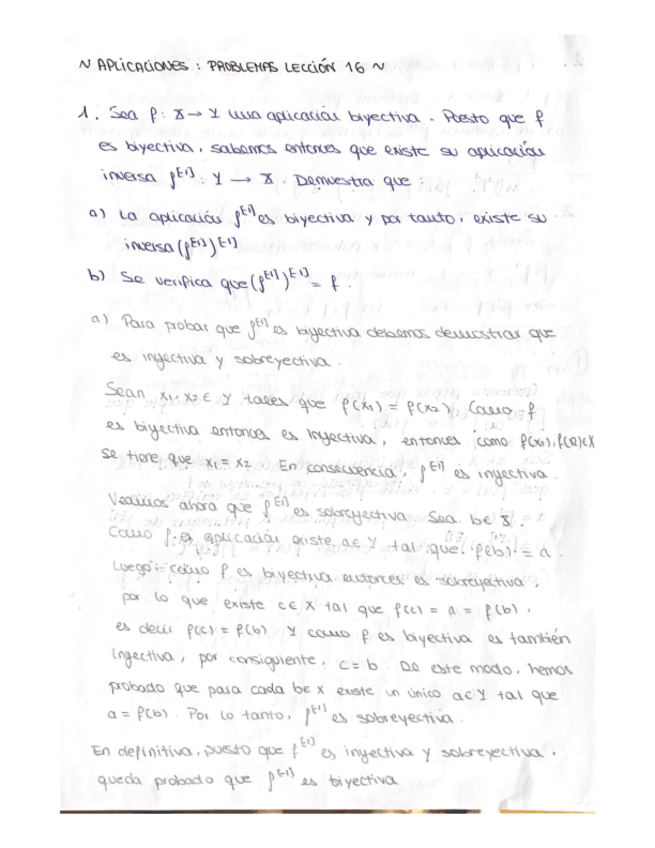 ~ APLICACIONES : PROBLEMAS LECCIÓN 16 ~
1. Sea f : X → Y una aplicación biyectiva. Puesto que f
es biyectiva, sabemos entonces que existe su aplicación
inversa f[-1] : Y → X. Demuestra que :
a) La aplicación f[-1] es biyectiva y por tanto, existe su
inversa (f[-1])[-1]
b) Se verifica que (f[-1])[-1] = f.
a) Para probar que f[-1] es biyectiva debemos demostrar que
es inyectiva y sobreyectiva.
Sean x1, x2 ∈ Y tales que f(x1) = f(x2). Como f
es biyectiva entonces es inyectiva, entonces como f(x1), f(x2) ∈ X
se tiene que x1 = x2. En consecuencia, f[-1] es inyectiva.
Veamos ahora que f[-1] es sobreyectiva. Sea b ∈ X.
Como f es aplicación existe a ∈ Y tal que f(b) = a.
Luego como f es biyectiva entonces es sobreyectiva,
por lo que existe c ∈ X tal que f(c) = a = f(b),
es decir f(c) = f(b) y como f es biyectiva es también
inyectiva, por consiguiente, c = b. De este modo, hemos
probado que para cada b ∈ X existe un único a ∈ Y tal que
a = f(b). Por lo tanto, f[-1] es sobreyectiva.
En definitiva, puesto que f[-1] es inyectiva y sobreyectiva,
queda probado que f[-1] es biyectiva